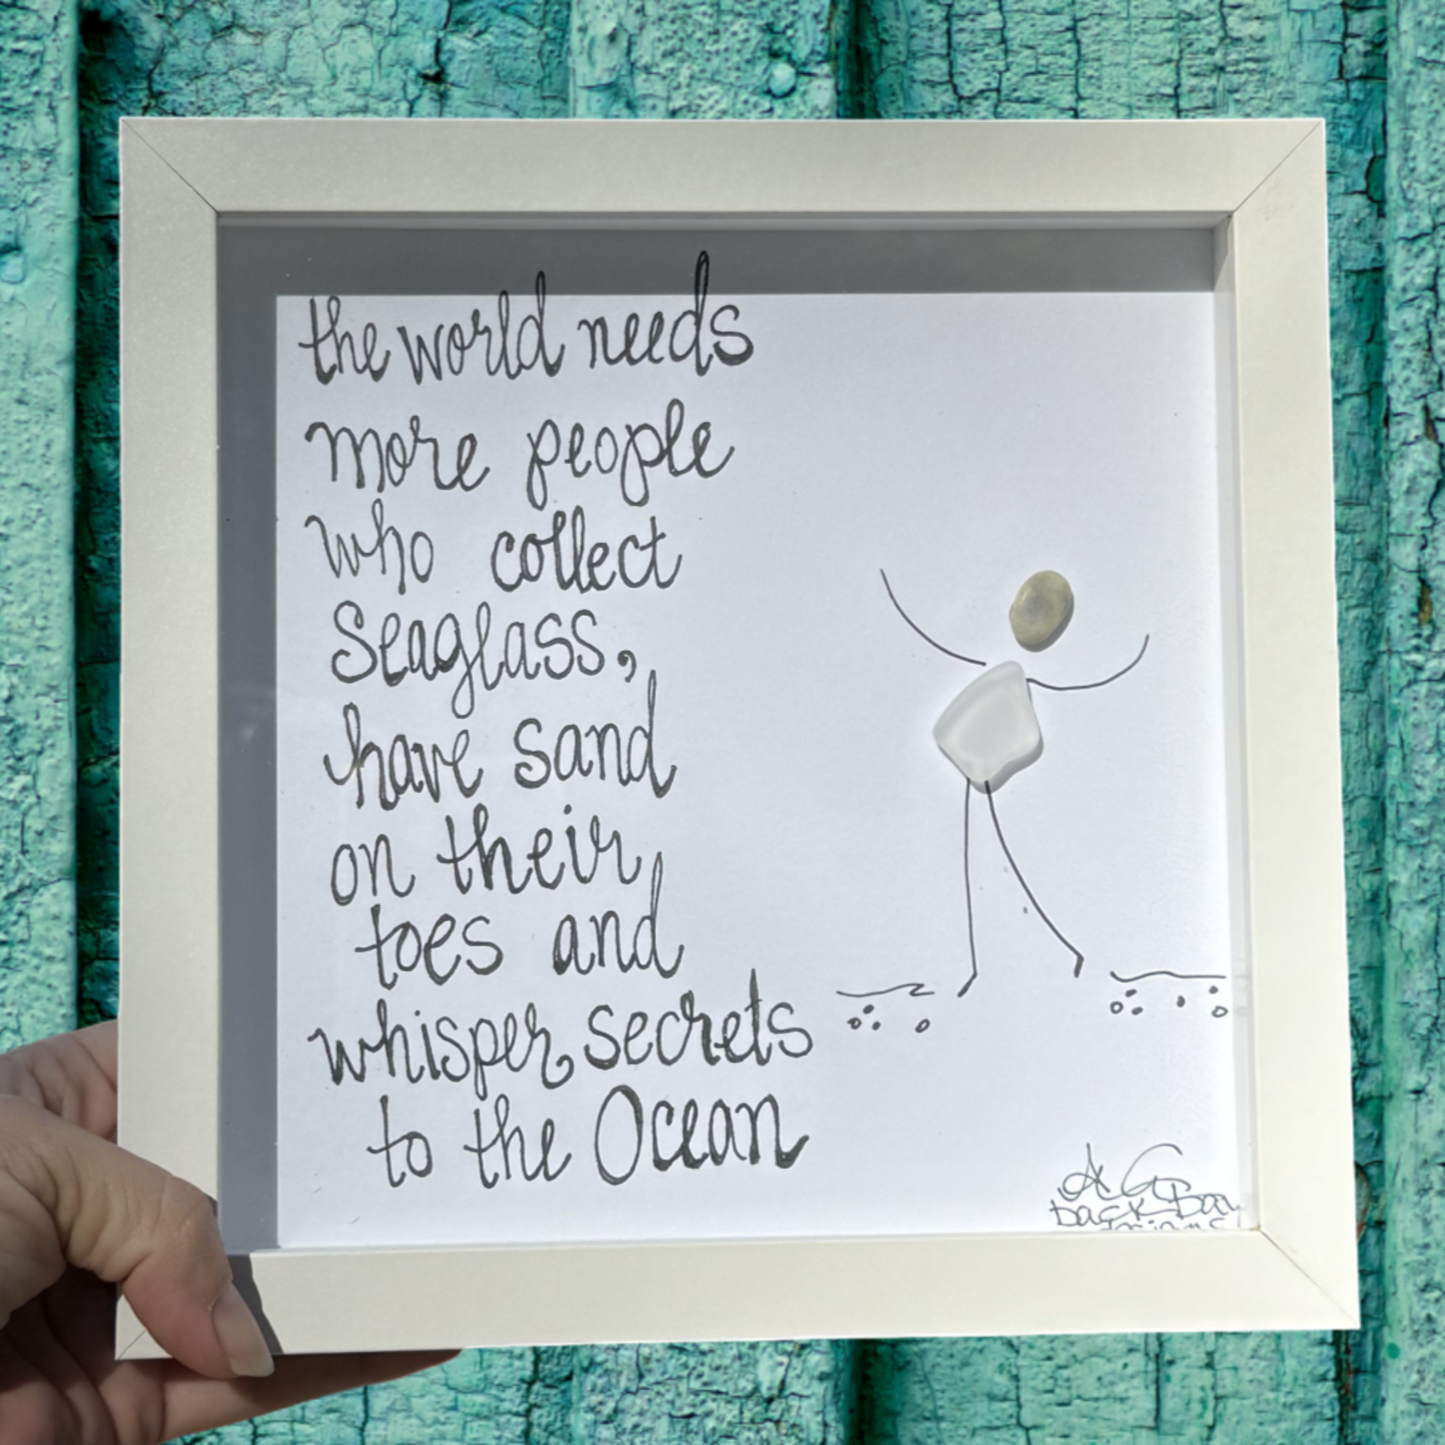 the world needs
more people
who collect
Seaglass,
have sand
on their
toes and
whisper secrets
to the Ocean
A G
Back Bay